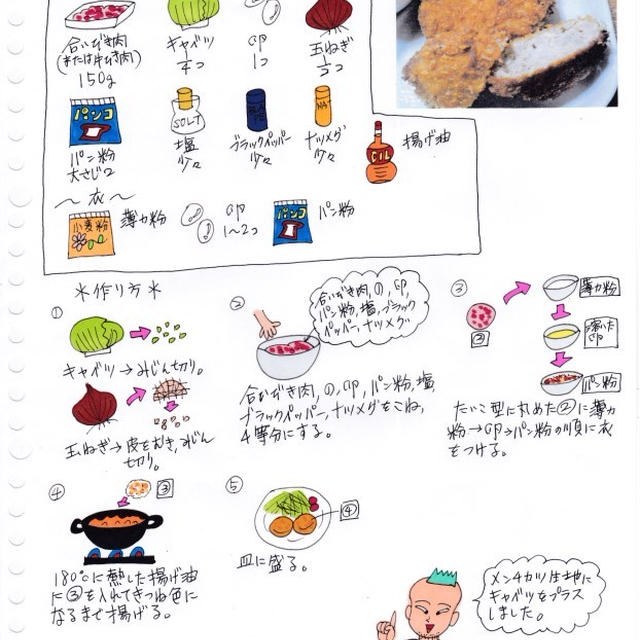 合いびき肉
(または牛ひき肉)
150g
キャベツ
1/4コ
卵
1コ
玉ねぎ
1/2コ
パンコ
パン粉
大さじ2
SOLT
塩
少々
ブラックペッパー
少々
NAT
ナツメグ
少々
OIL
揚げ油
〜衣〜
小麦粉
薄力粉
卵
1〜2コ
パンコ
パン粉
*作り方*
①
キャベツ→みじん切り。
玉ねぎ→皮をむき、みじん
切り。
②
合いびき肉、①、卵、
パン粉、塩、ブラック
ペッパー、ナツメグ
合いびき肉、①、卵、パン粉、塩、
ブラックペッパー、ナツメグをこね、
4等分にする。
③
②
薄力粉
溶いた
卵
パン粉
たいこ型に丸めた②に薄力
粉→卵→パン粉の順に衣
をつける。
④
③
180°に熱した揚げ油
に③を入れてきつね色に
なるまで揚げる。
⑤
④
皿に盛る。
メンチカツ生地に
キャベツをプラス
しました。